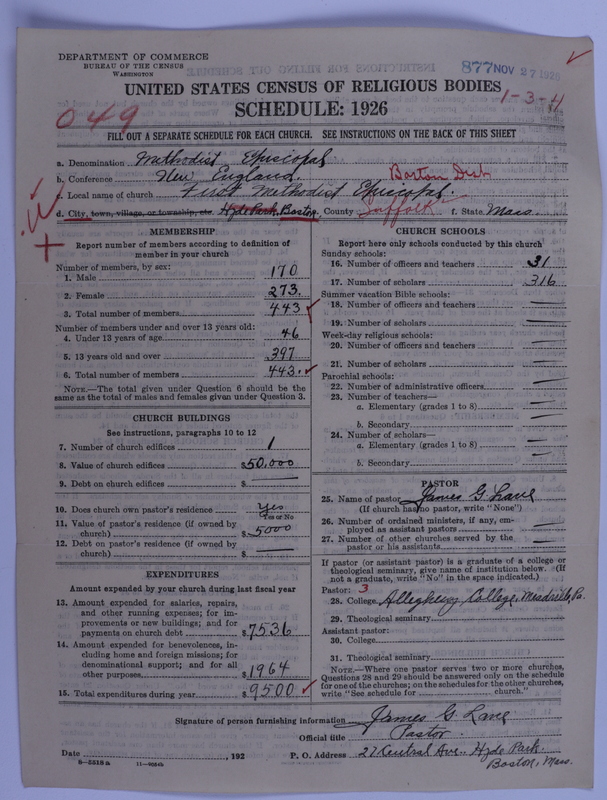 DEPARTMENT OF COMMERCE
BUREAU OF THE CENSUS
WASHINGTON
877 NOV 27 1926
UNITED STATES CENSUS OF RELIGIOUS BODIES
1-3-4
SCHEDULE: 1926
049
FILL OUT A SEPARATE SCHEDULE FOR EACH CHURCH. SEE INSTRUCTIONS ON THE BACK OF THIS SHEET
a. Denomination Methodist Episcopal
b. Conference New England. Boston Dist
c. Local name of church First Methodist Episcopal.
d. City, town, village, or township, etc. Hyde Park, Boston. County Suffolk f. State Mass.
MEMBERSHIP
Report number of members according to definition of
member in your church
Number of members, by sex:
1. Male 170
2. Female 273.
3. Total number of members 443
Number of members under and over 13 years old:
4. Under 13 years of age 46
5. 13 years old and over 397
6. Total number of members 443.
NOTE.—The total given under Question 6 should be the
same as the total of males and females given under Question 3.
CHURCH BUILDINGS
See instructions, paragraphs 10 to 12
7. Number of church edifices 1
8. Value of church edifices $50,000
9. Debt on church edifices $ —
10. Does church own pastor's residence? Yes
Yes or No
11. Value of pastor's residence (if owned by
church) $5000
12. Debt on pastor's residence (if owned by
church) $ —
EXPENDITURES
Amount expended by your church during last fiscal year
13. Amount expended for salaries, repairs,
and other running expenses; for im-
provements or new buildings; and for
payments on church debt $7536
14. Amount expended for benevolences, in-
cluding home and foreign missions; for
denominational support; and for all
other purposes $1964
15. Total expenditures during year $9500
CHURCH SCHOOLS
Report here only schools conducted by this church
Sunday schools:
16. Number of officers and teachers 31
17. Number of scholars 316
Summer vacation Bible schools:
18. Number of officers and teachers —
19. Number of scholars —
Week-day religious schools:
20. Number of officers and teachers —
21. Number of scholars —
Parochial schools:
22. Number of administrative officers —
23. Number of teachers—
a. Elementary (grades 1 to 8) —
b. Secondary —
24. Number of scholars—
a. Elementary (grades 1 to 8) —
b. Secondary —
PASTOR
25. Name of pastor James G. Lane
(If church has no pastor, write "None")
26. Number of ordained ministers, if any, em-
ployed as assistant pastors —
27. Number of other churches served by the
pastor or his assistants —
If pastor (or assistant pastor) is a graduate of a college or
theological seminary, give name of institution below. (If
not a graduate, write "No" in the space indicated.)
Pastor: 3
28. College Allegheny College, Meadville, Pa.
29. Theological seminary
Assistant pastor:
30. College
31. Theological seminary
NOTE.—Where one pastor serves two or more churches,
Questions 28 and 29 should be answered only on the schedule
for one of the churches; on the schedules for the other churches,
write "See schedule for church."
Signature of person furnishing information James G. Lane
Official title Pastor.
Date , 192 P. O. Address 27 Central Ave. Hyde Park.
Boston, Mass.